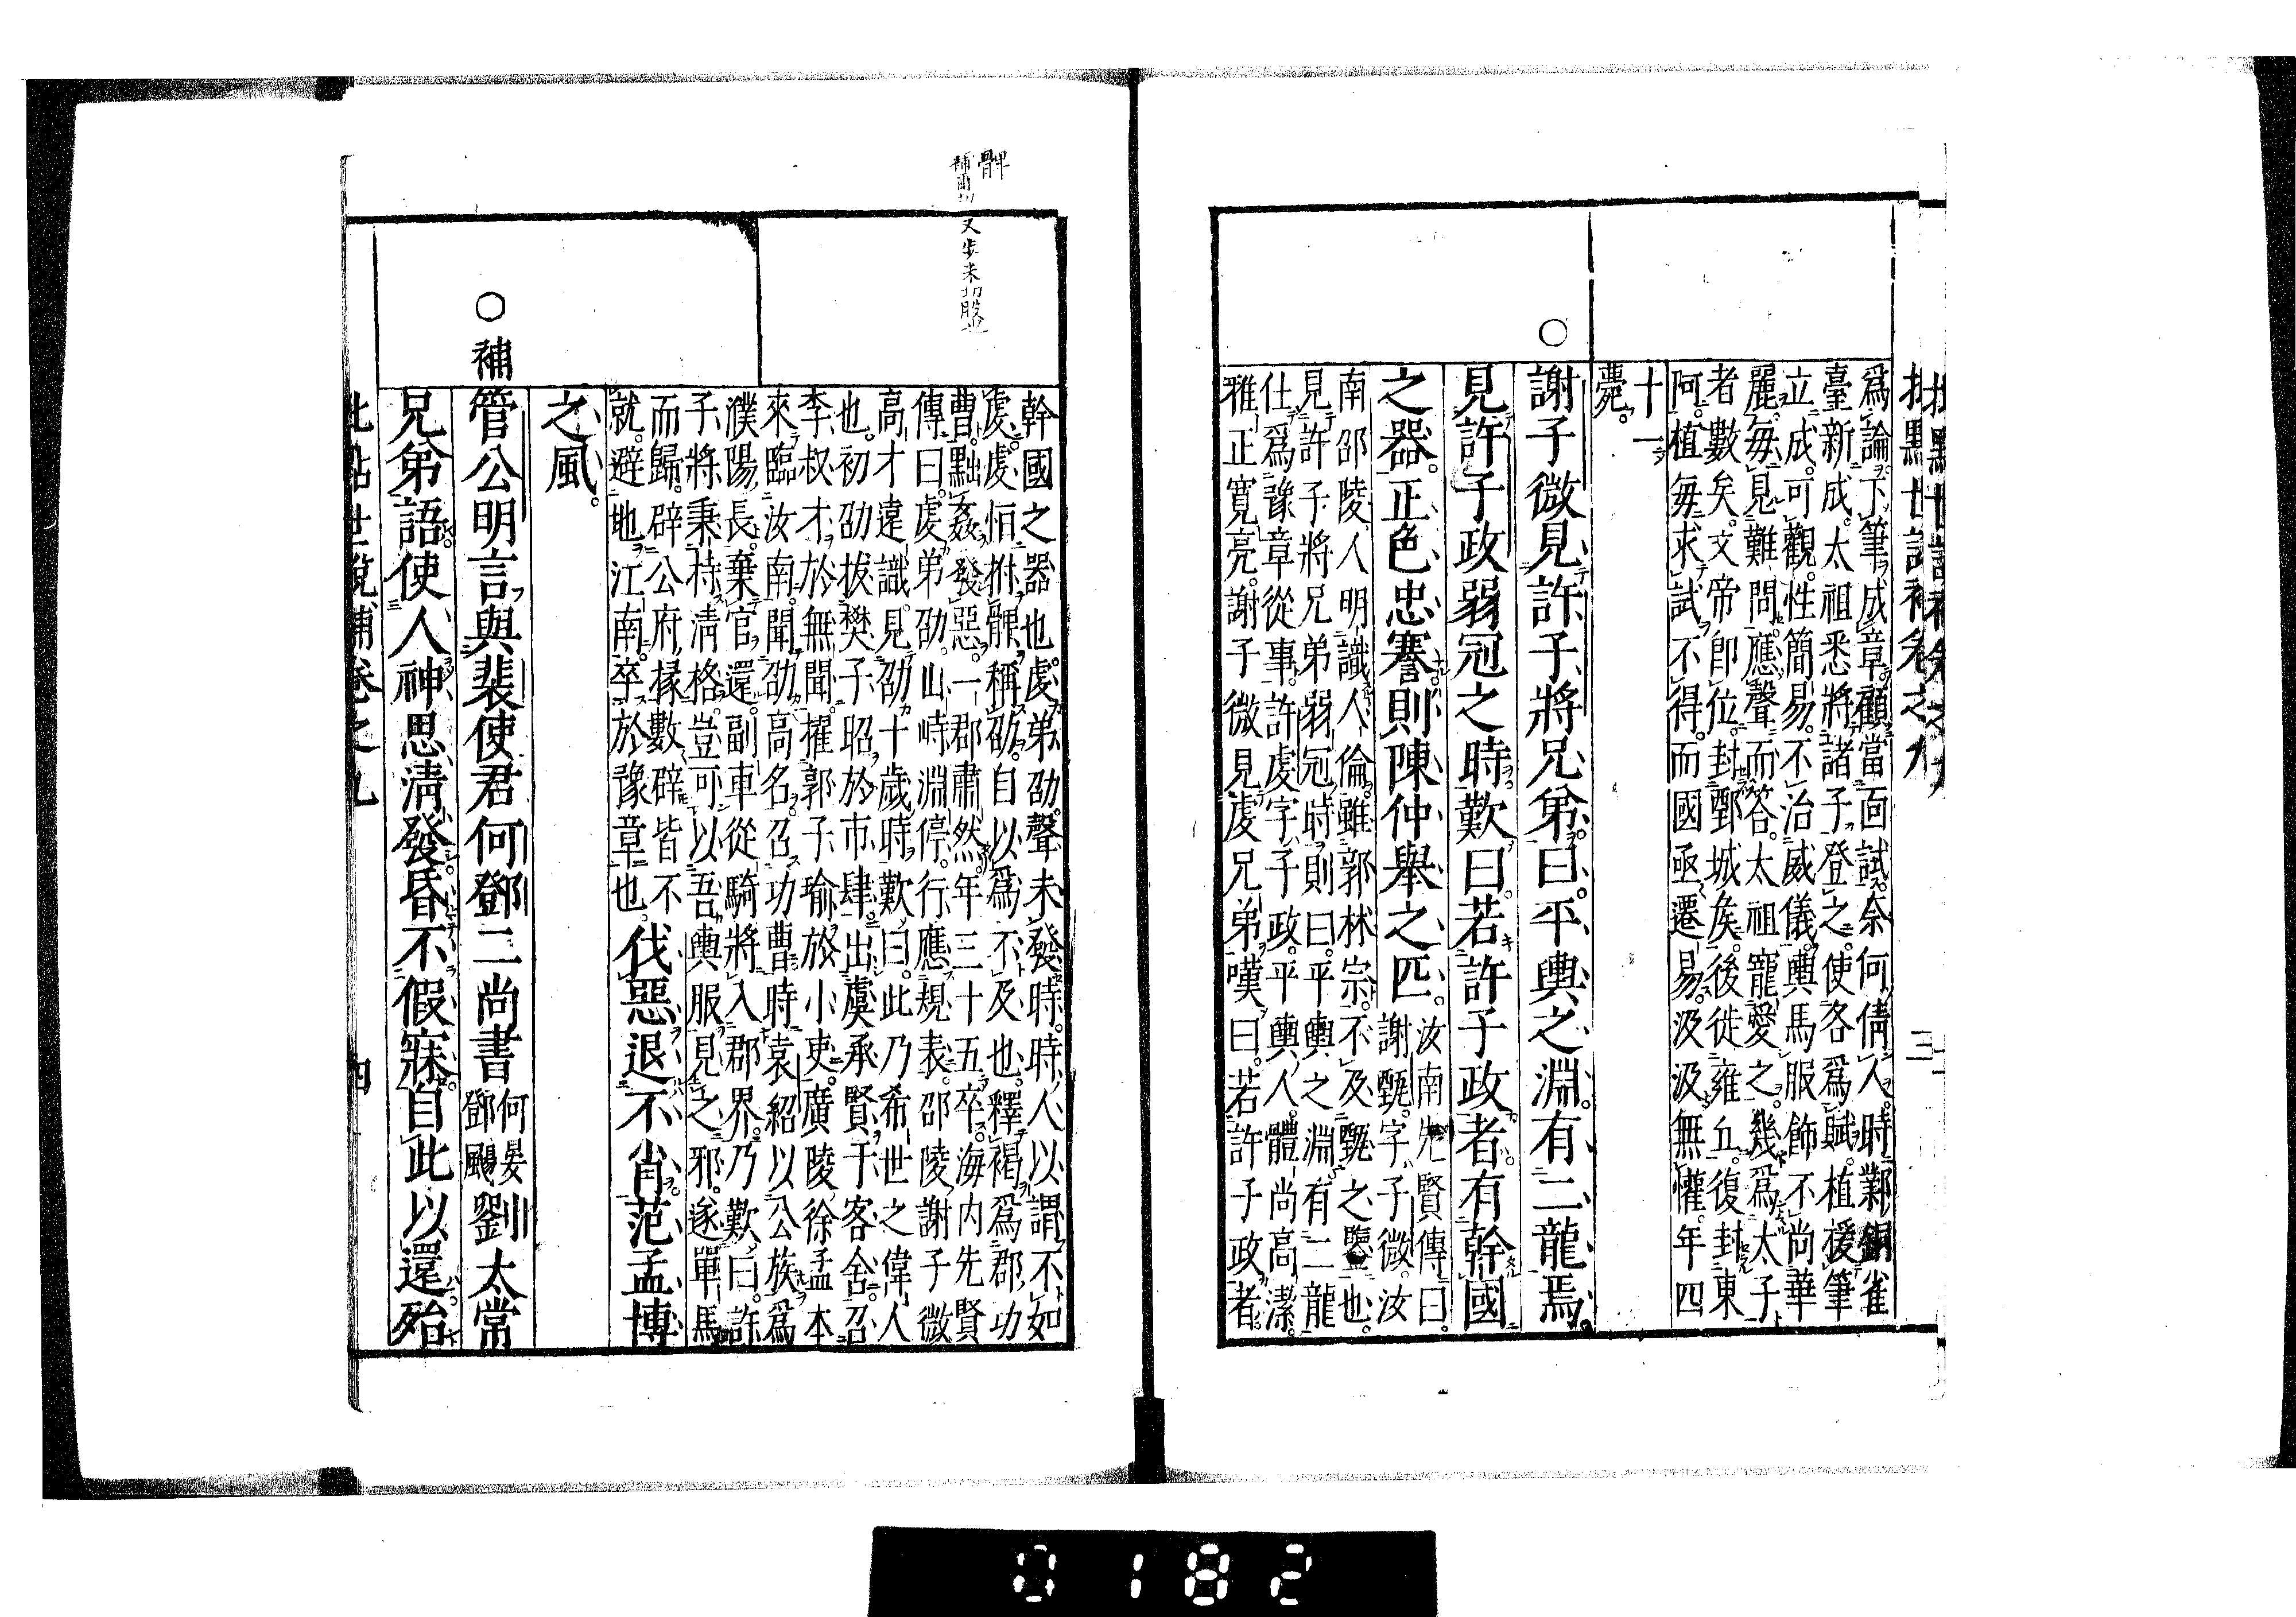 批點世說補卷之九
三
爲論下筆成章顧當面試奈何倩人時鄴銅雀
臺新成太祖悉將諸子登之使各爲賦植援筆
立成可觀性簡易不治威儀輿馬服飾不尚華
麗每見難問應聲而答太祖寵愛之幾爲太子
者數矣文帝即位封鄄城侯後徙雍丘復封東
阿植每求試不得而國亟遷易汲汲無懽年四
十一
薨
○謝子微見許子將兄弟曰平輿之淵有二龍焉
見許子政弱冠之時歎曰若許子政者有幹國
之器正色忠謇則陳仲舉之匹
汝南先賢傳曰
謝甄字子微汝
南邵陵人明識人倫雖郭林宗不及甄之鑒也
見許子將兄弟弱冠時則曰平輿之淵有二龍
仕爲豫章從事許虔字子政平輿人體尚高潔
雅正寛亮謝子微見虔兄弟嘆曰若許子政者
幹國之器也虔弟劭聲未發時時人以謂不如
虔虔恒拊髀稱劭自以爲不及也釋褐爲郡功
曹黜姦發惡一郡肅然年三十五卒海内先賢
傳曰虔弟劭山峙淵停行應規表邵陵謝子微
高才遠識見劭十歲時歎曰此乃希世之偉人
也初劭拔樊子昭於市肆出虞承賢于客舍召
李叔才於無聞擢郭子瑜於小吏廣陵徐孟本
來臨汝南聞劭高名召功曹時袁紹以公族爲
濮陽長棄官還副車從騎將入郡界乃歎曰許
子將秉持清格豈可以吾輿服見之邪遂單馬
而歸辟公府掾數辟皆不
就避地江南卒於豫章也
伐惡退不肖范孟博
之風
○補管公明言與裴使君何鄧二尚書
何晏
鄧颺
劉太常
兄弟語使人神思清發昏不假寐自此以還殆
批點世說補卷之九
四
髀
補爾切又步米切股也
0182